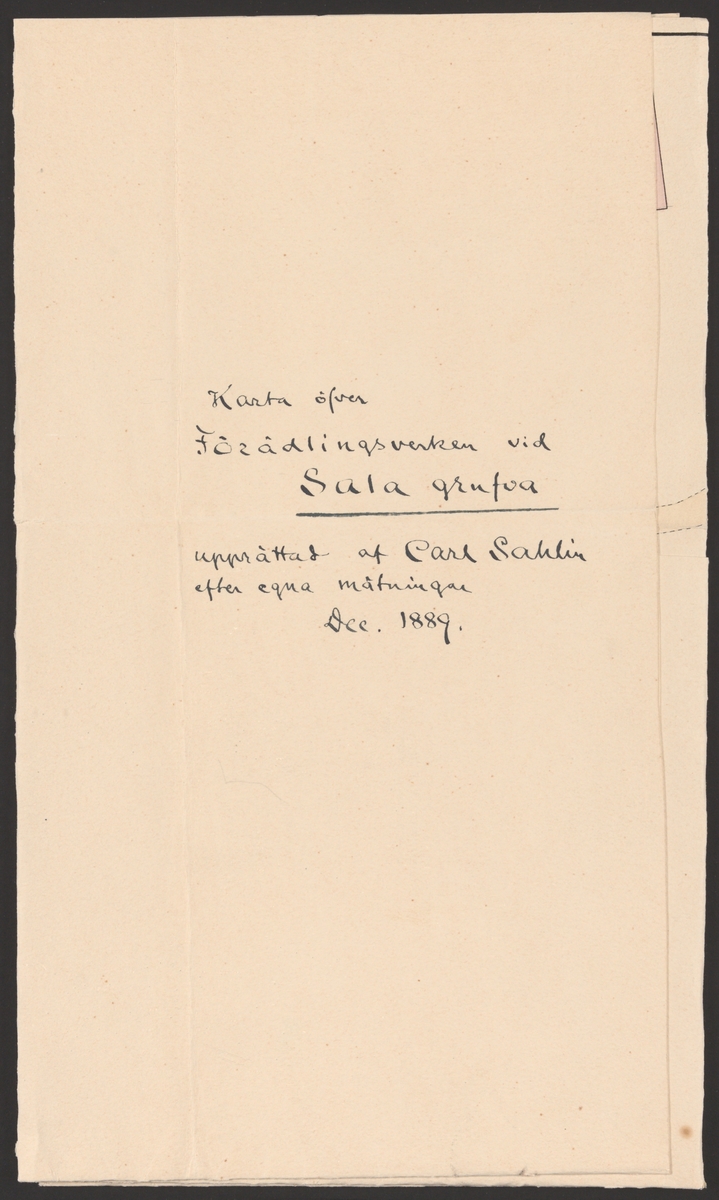 Karta öfver
Förädlingsverken vid
Sala grufva
upprättad af Carl Sahlin
efter egna mätningar
Dec. 1889.